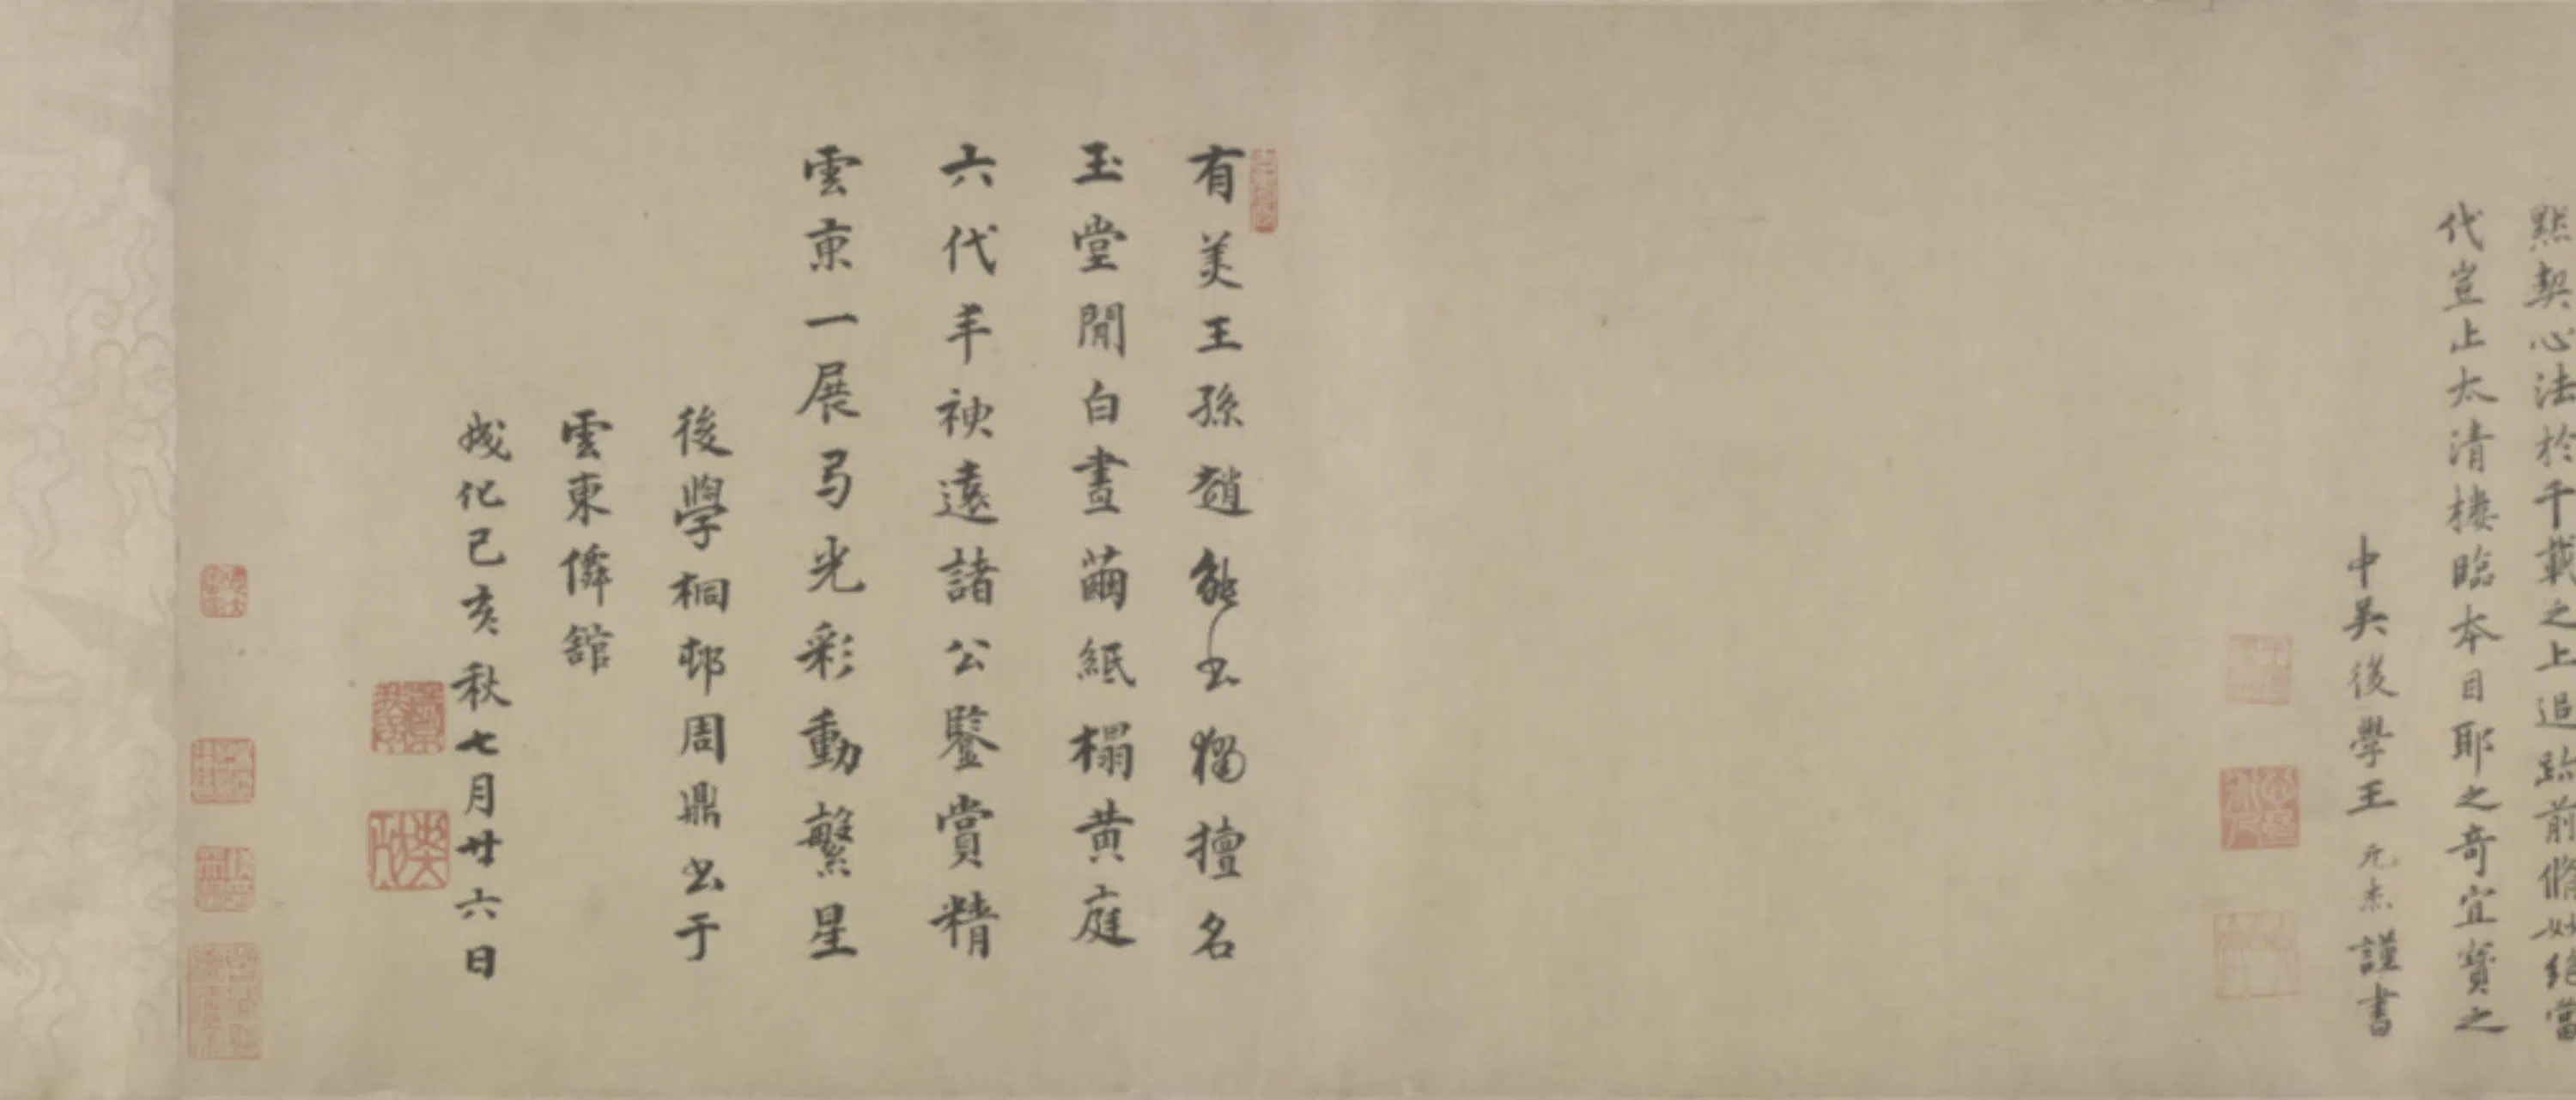 點契心法於千載之上追跡前脩妙絕當
代豈止太清樓臨本目耶之奇宜寶之
中吳後學王元杰謹書
有美王孫趙能书獨擅名
玉堂閒白晝繭紙榻黃庭
六代羊𥘾遠諸公鑒賞精
雲東一展弓光彩動繁星
後學桐邨周鼎书于
雲東僊館
成化己亥秋七月廿六日